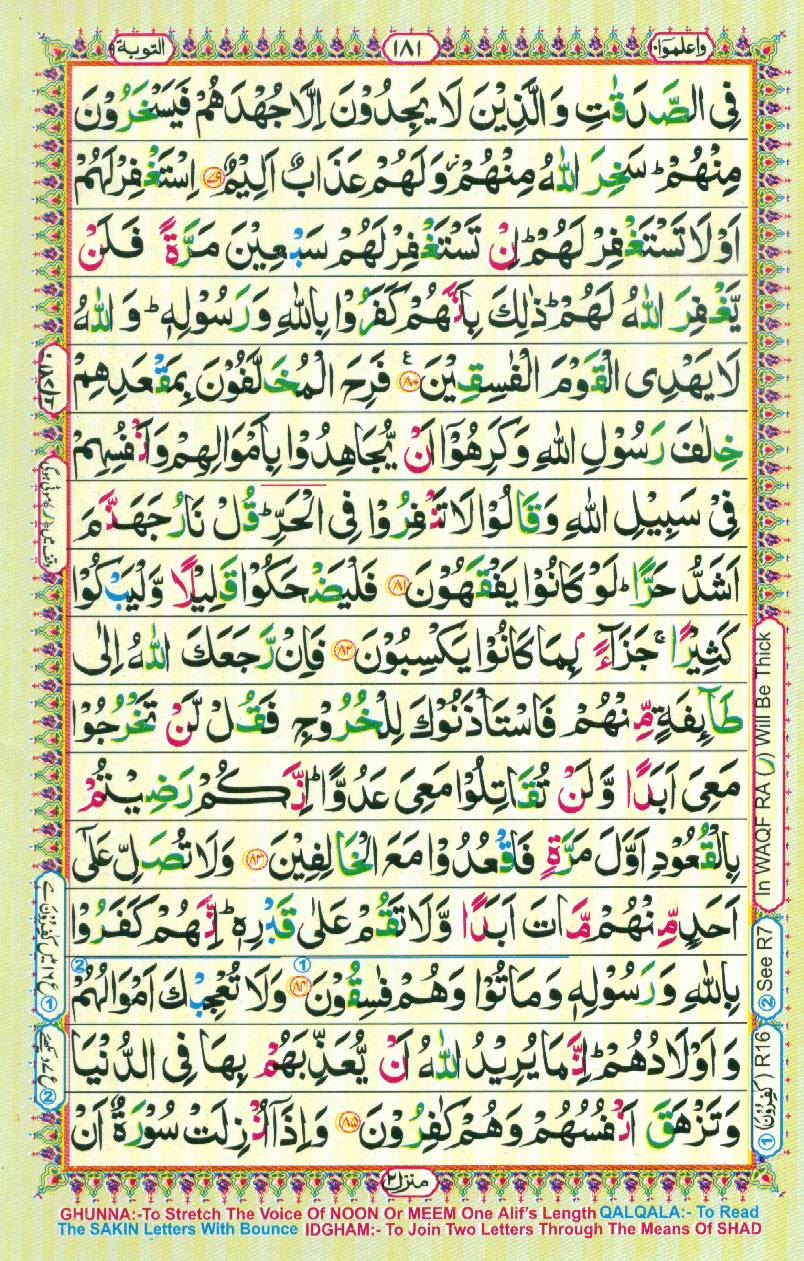 التوبة ۹
۱۸۱
واعلموا ۱۰
فِى الصَّدَقٰتِ وَالَّذِيْنَ لَا يَجِدُوْنَ اِلَّا جُهْدَهُمْ فَيَسْخَرُوْنَ
مِنْهُمْ ؕ سَخِرَ اللّٰهُ مِنْهُمْ ز وَلَهُمْ عَذَابٌ اَلِيْمٌ ﴿۷۹﴾ اِسْتَغْفِرْ لَهُمْ
اَوْ لَا تَسْتَغْفِرْ لَهُمْ ؕ اِنْ تَسْتَغْفِرْ لَهُمْ سَبْعِيْنَ مَرَّةً فَلَنْ
يَّغْفِرَ اللّٰهُ لَهُمْ ؕ ذٰلِكَ بِاَنَّهُمْ كَفَرُوْا بِاللّٰهِ وَرَسُوْلِهٖ ؕ وَاللّٰهُ
لَا يَهْدِى الْقَوْمَ الْفٰسِقِيْنَ ﴿۸۰﴾ ع فَرِحَ الْمُخَلَّفُوْنَ بِمَقْعَدِهِمْ
خِلٰفَ رَسُوْلِ اللّٰهِ وَكَرِهُوْۤا اَنْ يُّجَاهِدُوْا بِاَمْوَالِهِمْ وَاَنْفُسِهِمْ
فِىْ سَبِيْلِ اللّٰهِ وَقَالُوْا لَا تَنْفِرُوْا فِى الْحَرِّ ؕ قُلْ نَارُ جَهَنَّمَ
اَشَدُّ حَرًّا ؕ لَوْ كَانُوْا يَفْقَهُوْنَ ﴿۸۱﴾ فَلْيَضْحَكُوْا قَلِيْلًا وَّلْيَبْكُوْا
كَثِيْرًا ۚ جَزَآءًۢ بِمَا كَانُوْا يَكْسِبُوْنَ ﴿۸۲﴾ فَاِنْ رَّجَعَكَ اللّٰهُ اِلٰى
طَآئِفَةٍ مِّنْهُمْ فَاسْتَاْذَنُوْكَ لِلْخُرُوْجِ فَقُلْ لَّنْ تَخْرُجُوْا
مَعِىَ اَبَدًا وَّلَنْ تُقَاتِلُوْا مَعِىَ عَدُوًّا ؕ اِنَّكُمْ رَضِيْتُمْ
بِالْقُعُوْدِ اَوَّلَ مَرَّةٍ فَاقْعُدُوْا مَعَ الْخَالِفِيْنَ ﴿۸۳﴾ وَلَا تُصَلِّ عَلٰٓى
اَحَدٍ مِّنْهُمْ مَّاتَ اَبَدًا وَّلَا تَقُمْ عَلٰى قَبْرِهٖ ؕ اِنَّهُمْ كَفَرُوْا
بِاللّٰهِ وَرَسُوْلِهٖ وَمَاتُوْا وَهُمْ فٰسِقُوْنَ ﴿۸۴﴾ وَلَا تُعْجِبْكَ اَمْوَالُهُمْ
وَاَوْلَادُهُمْ ؕ اِنَّمَا يُرِيْدُ اللّٰهُ اَنْ يُّعَذِّبَهُمْ بِهَا فِى الدُّنْيَا
وَتَزْهَقَ اَنْفُسُهُمْ وَهُمْ كٰفِرُوْنَ ﴿۸۵﴾ وَاِذَاۤ اُنْزِلَتْ سُوْرَةٌ اَنْ
منزل ۲
In WAQF RA (ر) Will Be Thick
② See R7
① (كٰفِرُوْنَ) R16
GHUNNA:-To Stretch The Voice Of NOON Or MEEM One Alif's Length QALQALA:- To Read
The SAKIN Letters With Bounce IDGHAM:- To Join Two Letters Through The Means Of SHAD